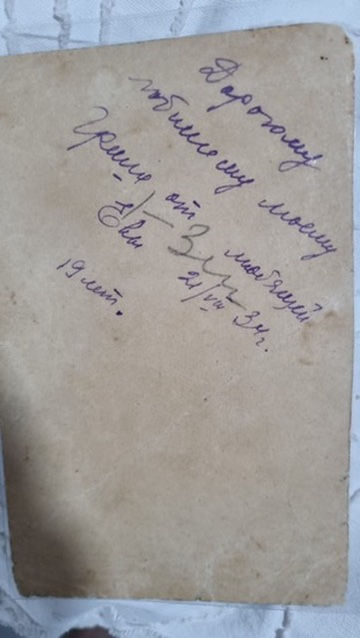 Дорогому
любимому моему
Грише от любящей
Евы
21/VIII 34 г.
19 лет.